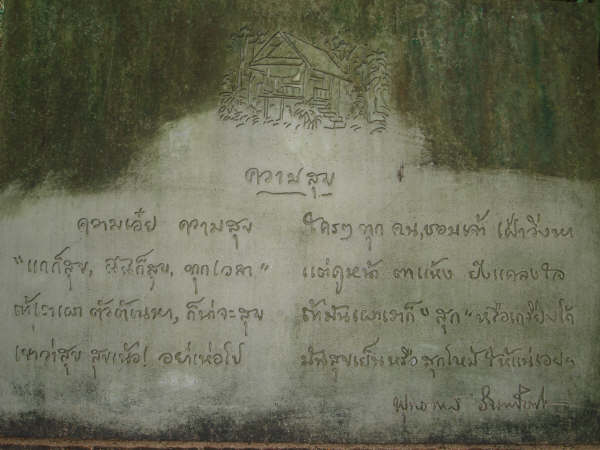 ความสุข
ความเอ๋ย ความสุข ใครๆ ทุก คน, ชอบเจ้า เฝ้าวิ่งหา
"แกก็สุข, ฉันก็สุข, ทุกเวลา" แต่ดูหน้า ตาแห้ง ยังแคลงใจ
ถ้าเราเผา ตัวตัณหา, ก็น่าจะสุข ถ้ามันเผาเราก็ "สุก" หรือเกรียมได้
เขาว่าสุข สุขเน้อ! อย่าเห่อไป มันสุขเย็น หรือ สุกไหม้ ให้แน่เอยฯ
พุทธทาส อินทปัญโญ